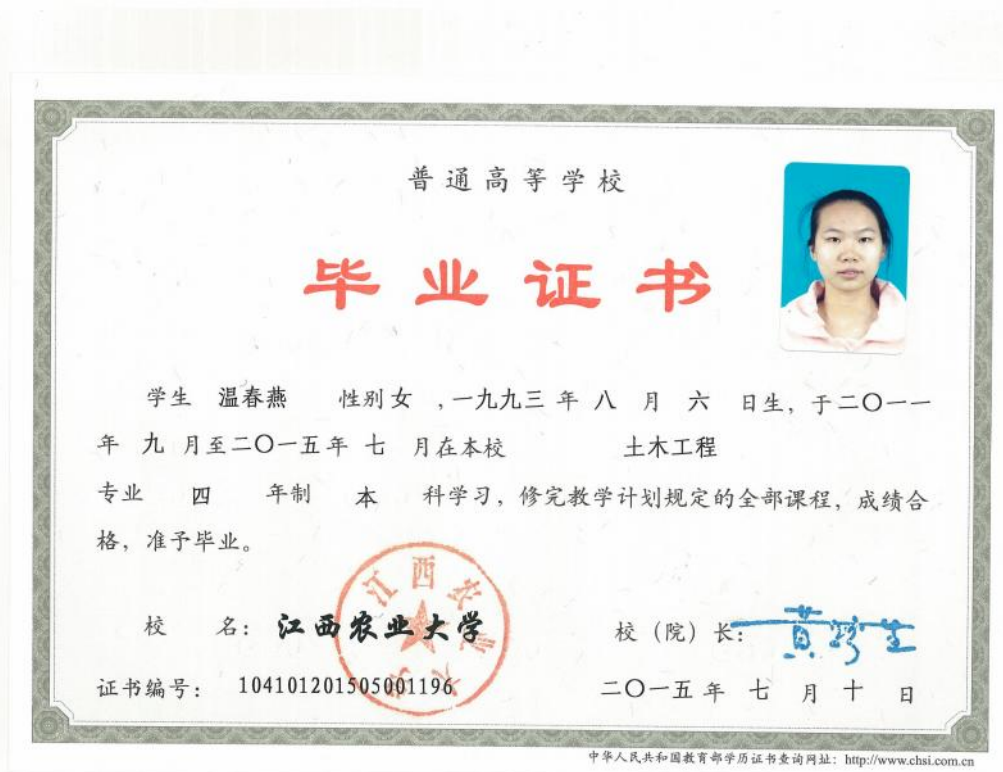 普通高等学校
毕业证书
学生 温春燕 性别女 ,一九九三 年 八 月 六 日生，于二〇一一
年 九 月至二〇一五年 七 月在本校 土木工程
专业 四 年制 本 科学习，修完教学计划规定的全部课程，成绩合
格，准予毕业。
江西农业大学
校 名：江西农业大学 校（院）长：黄路生
证书编号：104101201505001196 二〇一五年 七 月 十 日
中华人民共和国教育部学历证书查询网址：http://www.chsi.com.cn